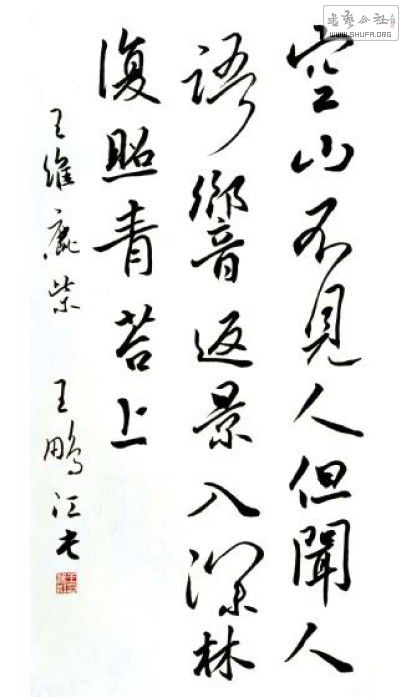 空山不見人但聞人
語響返景入深林
復照青苔上
王維鹿柴 王鵬江书
书艺公社
WWW.SHUFA.ORG